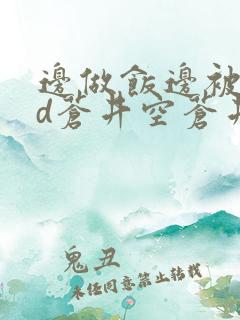 邊做飯邊被
d蒼井空蒼井
鬼丑
未经同意禁止转载